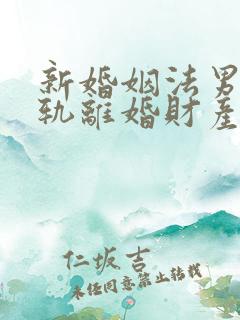 新婚姻法男
軌離婚財產
仁坂吉
未任同意禁止转载